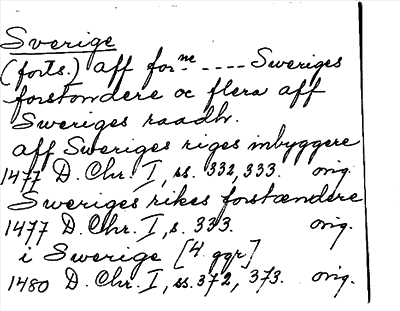 Sverige
(forts.) aff for ne ---- Sweriges
forstondere oc flera aff
Sweriges raadh.
aff Sweriges riges inbyggere
1477 D. Chr. I, ss. 332, 333. orig.
Sweriges rikes forstændere
1477 D. Chr. I, s. 333. orig.
i Swerige [4 ggr]
1480 D. Chr. I, ss. 372, 373. orig.